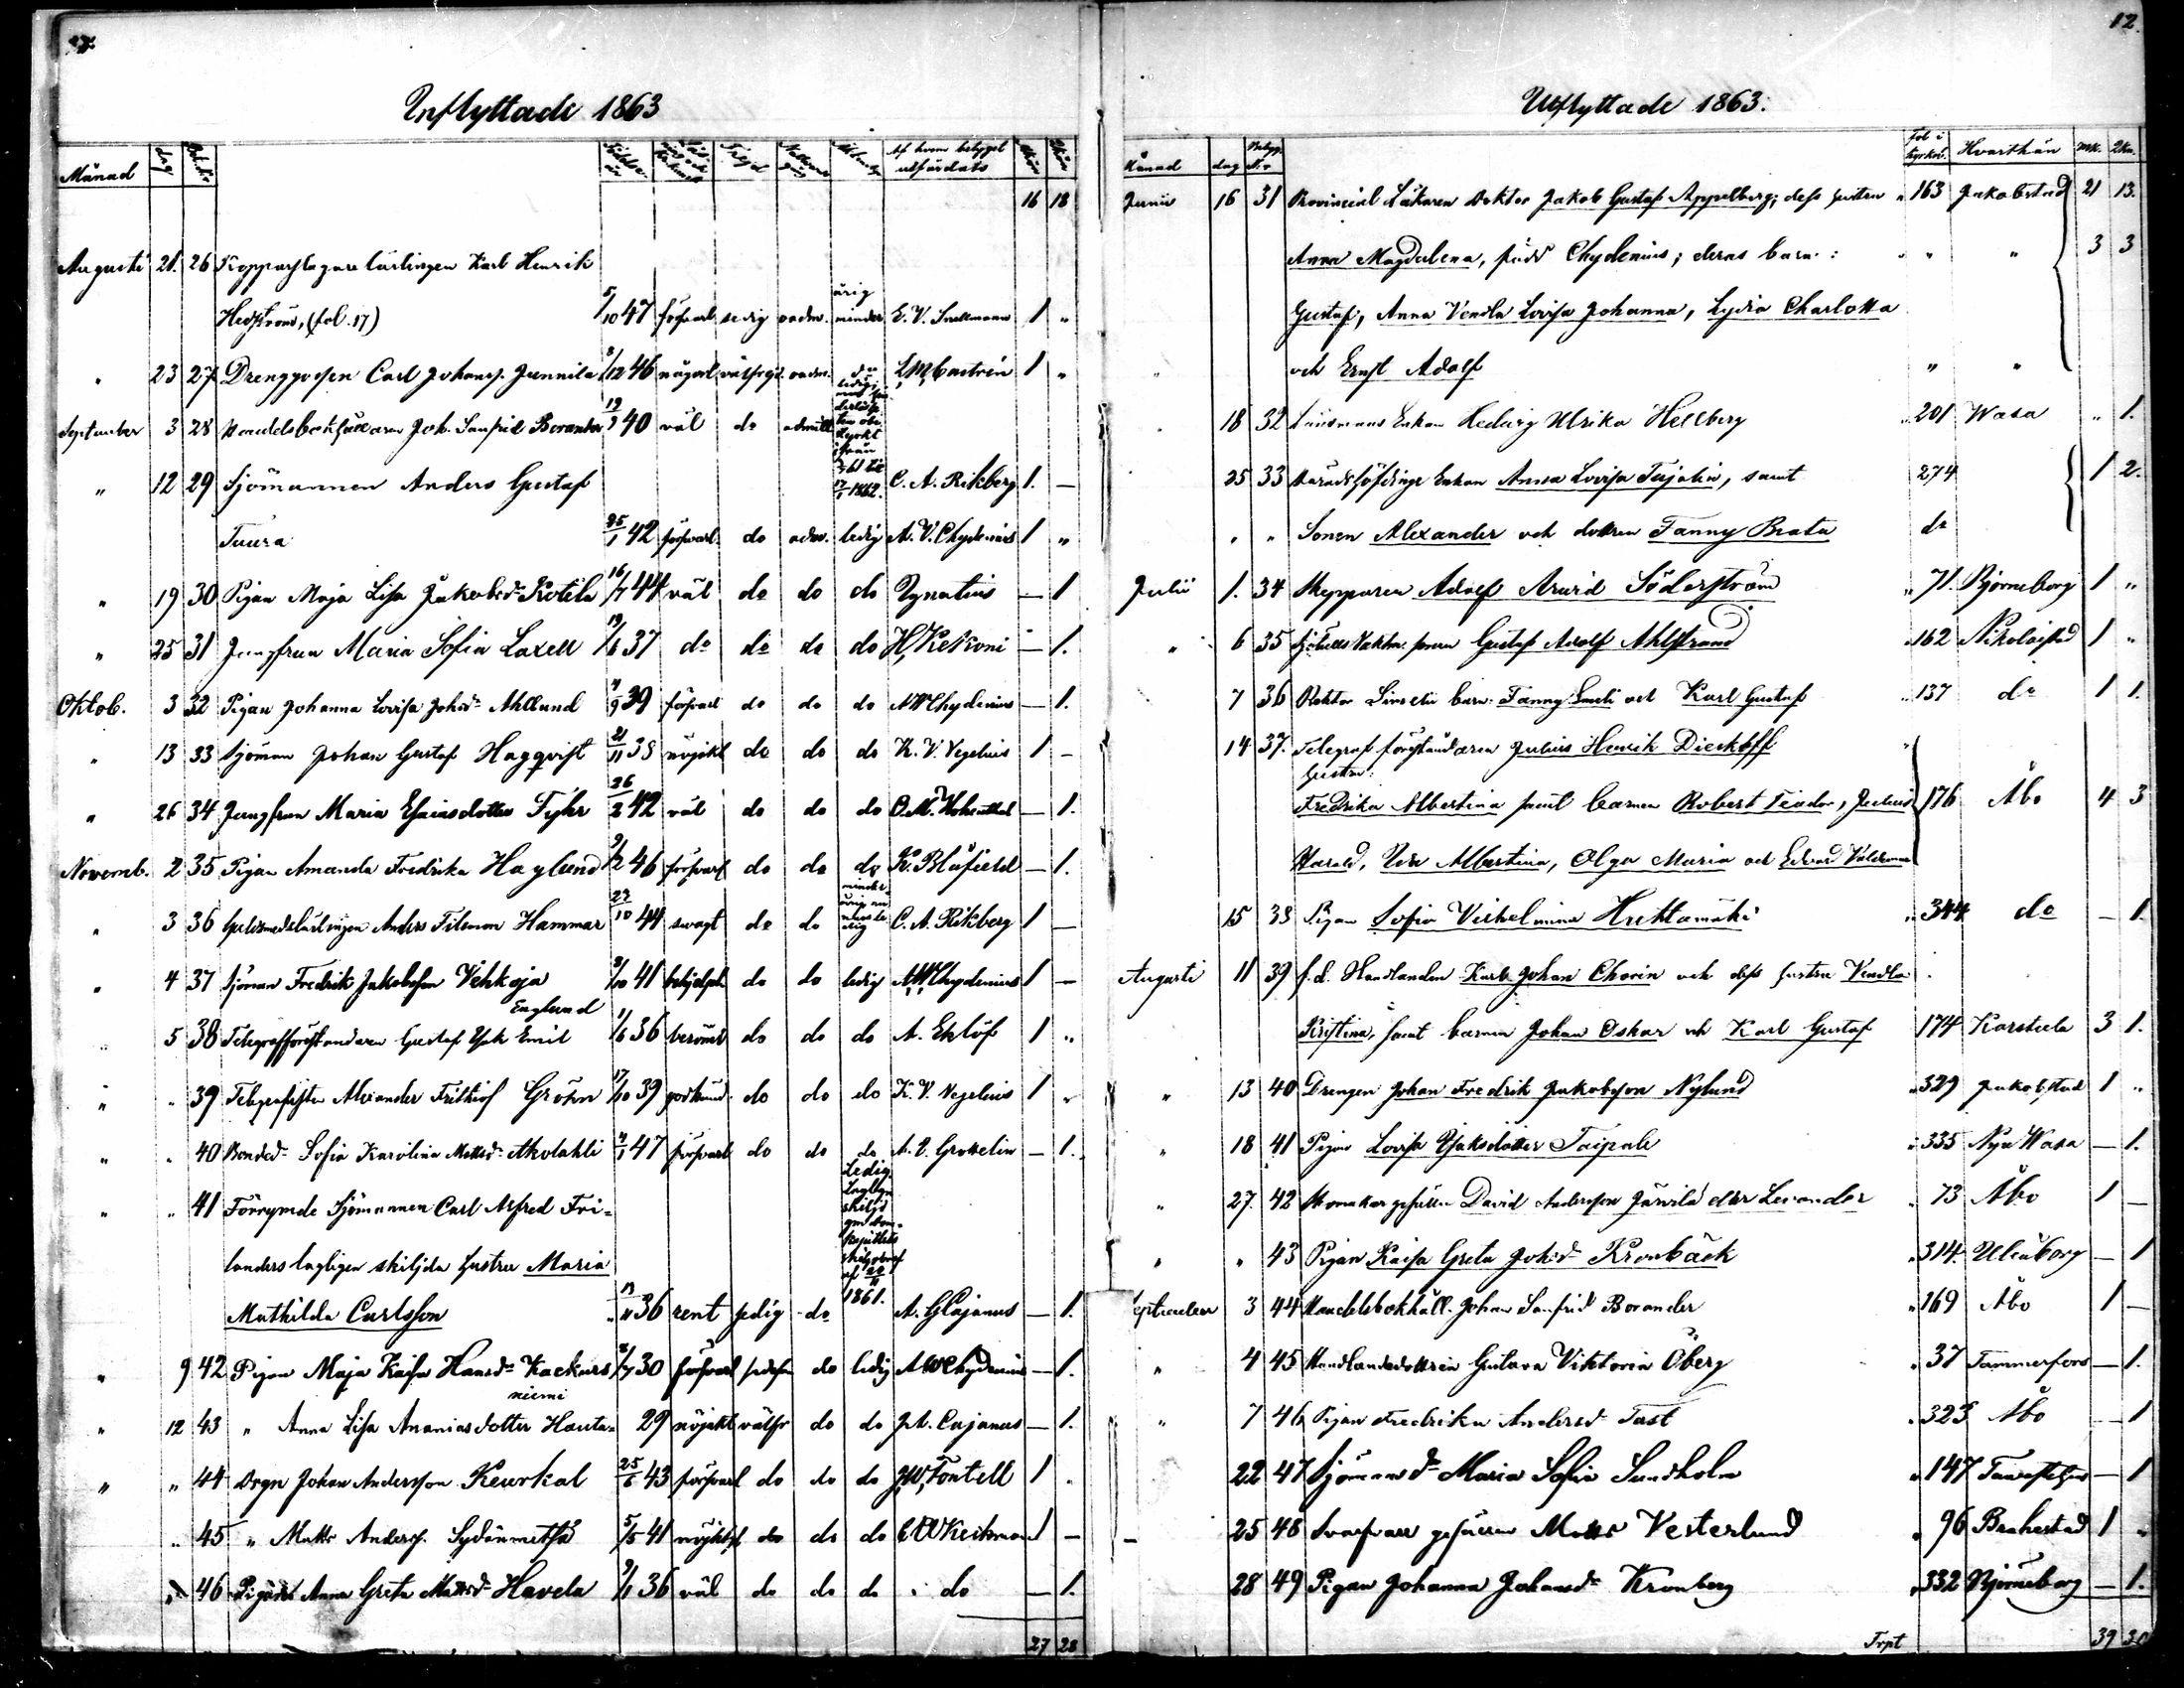 Inflyttade 1863
Månad dag Af hvem betyget utfärdats
16 18
Augusti 21. 26 Kopparslagare lärlingen Karl Henrik
Hedström, (fol. 17) 5/10 47 försvarl. sedig 1 "
" 23 27 Drengpojken Carl Johans. Junnila 8/12 46 1 "
September 3 28 Handelsbokhållaren Joh. Sanfrid Borander 40 väl do
" 12 29 Sjömannen Anders Gustaf C. A. Rikberg 1. —
Tuura 25/1 42 försvarl. do adm. ledig A. V. Chydenius 1 "
" 19 30 Pigan Maja Lisa Jakobsdr Kotila 16/7 44 väl do do do Ignatius — 1
" 25 31 Jungfrun Maria Sofia Laxell 19/6 37 do do do do H. Kekoni — 1.
Oktob. 3 32 Pigan Johanna Lovisa Johsdr Ahllund 39 försvarl do do do AW Chydenius — 1.
" 13 33 Sjöman Johan Gustaf Hagqvist 21/11 38 nöjakt do do do K. V. Vegelius 1 —
" 26 34 Jungfrun Maria Esaiasdotter Fyhr 26/2 42 väl do do do — 1.
Novemb. 2 35 Pigan Amanda Fredrika Haglund 46 försvarl do do do K. Blåfield — 1.
" 3 36 Anders Filemon Hammar 27/10 44 svagt do do C. A. Rikberg 1 —
" 4 37 Sjöman Fredrik Jakobsson Vehkoja 41 do do ledig AW Chydenius 1 —
Englund
" 5 38 Telegrafföreståndaren Gustaf Isak Emil 1/6 36 berömd do do do A. Eklöf 1 "
" " 39 Telegrafisten Alexander Frithiof Gröhn 17/10 39 godkänd do do do K. V. Vegelius 1 "
" " 40 Bonded. Sofia Karolina Mattsdr 47 försvarl do do do — 1.
" " 41 Förrymde Sjömannen Carl Alfred Fri-
landers lagligen skiljda hustru Maria
Mathilda Carlsson 36 rent sedig do 1861. — 1.
" 9 42 Pigan Maja Kaisa Hansdr 30 försvarl do ledig AW Chydenius — 1.
niemi
" 12 43 " Anna Lisa Ananiasdotter Hauta- 29 nöjakt do do Cajanus — 1.
" " 44 Drgn Johan Andersson Keurkal 25/6 43 försvarl do do do J.W. Fontell 1 "
" 45 " Matts Anderss. Sydänmetsä 5/5 41 do do do 1 —
" 46 Anna Greta Mattsdr Havela 36 väl do do do do — 1.
27 28
12.
Utflyttade 1863.
Månad dag Betyg. Nr Fol i kyrkob. Hvarthän mk. qkn.
Junii 16 31 Provincial Läkaren Doktor Jakob Gustaf Appelberg; dess hustru " 163 Jakobstad 21 13.
Anna Magdalena, född Chydenius; deras barn: " " 3 3
Gustaf, Anna Vendla Lovisa Johanna, Lydia Charlotta
och Ernst Adolf " "
18 32 Länsmans Enkan Hedvig Ulrika Hellberg 201 Wasa " 1.
25 33 Häradshöfdinge Enkan Anna Lovisa, samt 274 1 2.
" " Sonen Alexander och dottren Fanny Beata do
Julii 1. 34 Skepparen Adolf Arvid Söderström " 71. Björneborg 1 "
" 6 35 Gustaf Adolf Ahlstrand " 162 Nikolaistad 1 "
7 36 Rektor barn: Fanny Emili och Karl Gustaf " 137 do 1 1.
14 37. Telegraf föreståndaren Julius Henrik Dieckhoff
hustru:
Fredrika Albertina samt barnen Robert Teodor, Julius 176 Åbo 4 3
Harald, Ida Albertina, Olga Maria och Edvard Valdemar
15 38 Pigan Sofia Vilhelmina Huhtamäki " 344 do — 1.
Augusti 11 39 f.d. Handlanden Karl Johan Chorin och dess hustru Vendla
Kristina, samt barnen Johan Oskar och Karl Gustaf 174 Karstula 3 1.
" 13 40 Drengen Johan Fredrik Jakobsson Nylund " 329 Jakobstad 1 "
" 18 41 Pigan Lovisa Isaksdotter Taipale " 335 Nya Wasa — 1.
" 27. 42 Skomakar gesällen David Andersson Järvilä eller Levander " 73 Åbo 1 —
" " 43 Pigan Kaisa Greta Johsdr Kronbäck " 314. Uleåborg — 1
September 3 44 Handelsbokhåll. Johan Sanfrid Borander " 169 Åbo 1 —
" 4 45 Handlandsdottren Gustava Viktoria Öberg " 37 Tammerfors — 1.
" 7 46 Pigan Fredrika Andersdr Tast " 323 Åbo — 1
22 47 Sjömansdr Maria Sofia Sundholm " 147 Tavastehus — 1
25 48 Svarfvare gesällen Matts Vesterlund " 96 Brahestad 1 "
28 49 Pigan Johanna Johansdr Kronberg " 332 Björneborg — 1.
Trpt 39 30